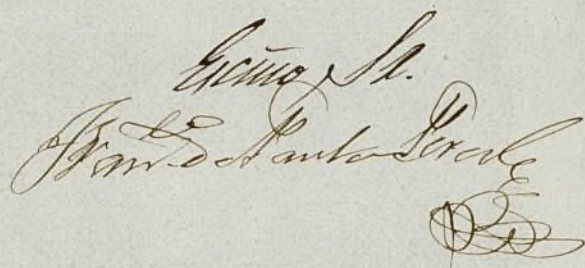 Excmo. Sr.
Fran.co de Paula